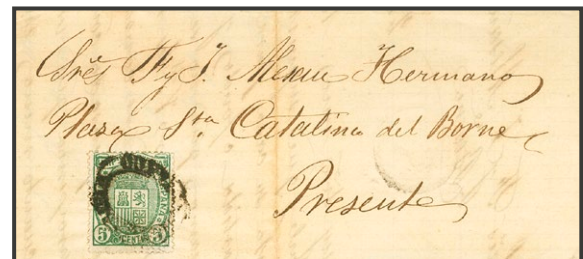 Sres F y J. Alexau Hermano
Plaza Sta Catalina del Borne
Presente
5 CENT 5